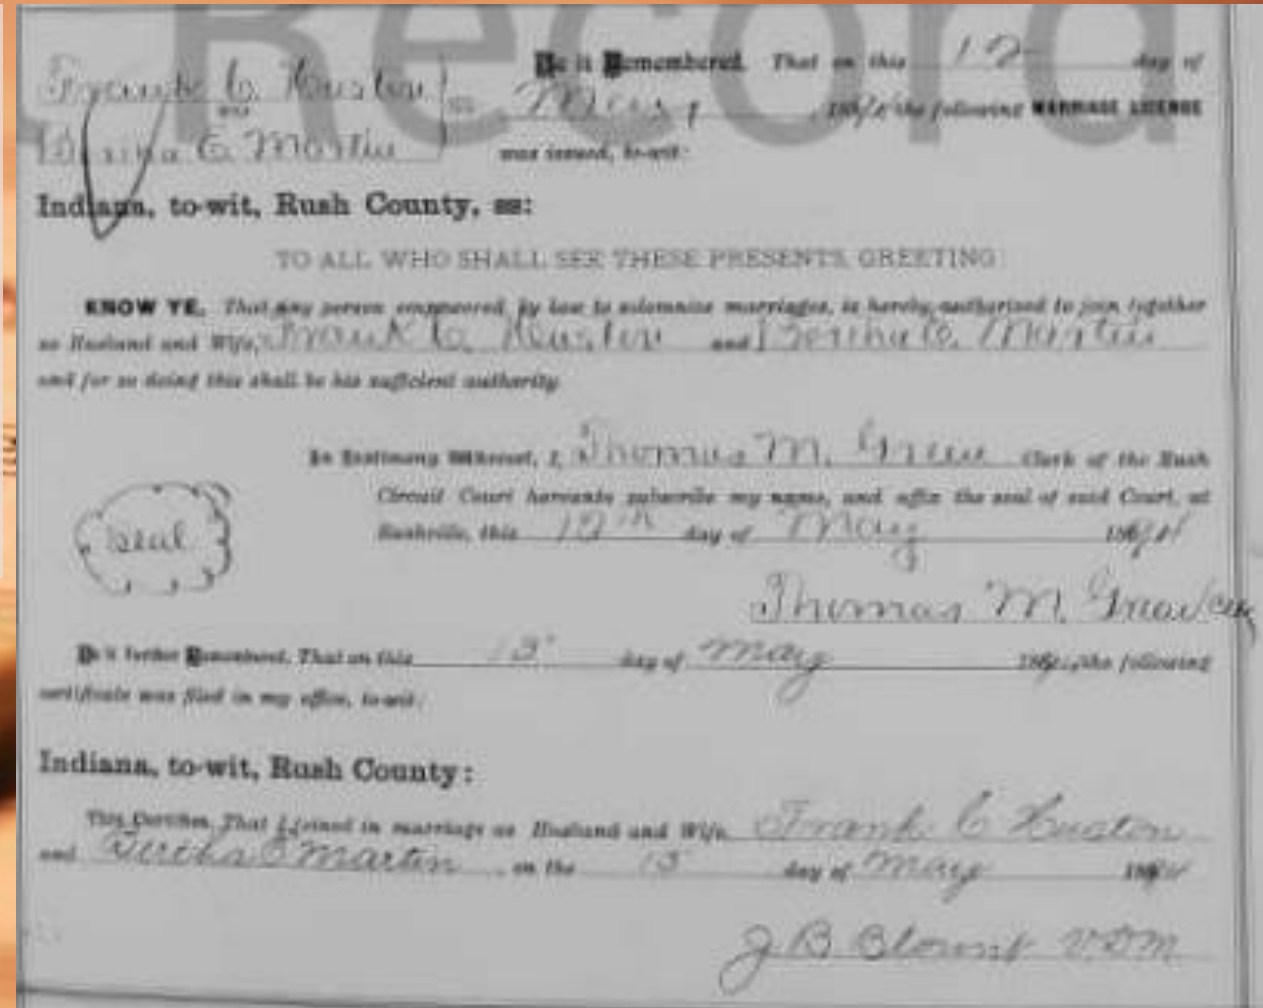 Record
Frank C. Huston
and
Bertha E Martin
Be it Remembered, That on this 12 day of
May, 189 the following MARRIAGE LICENSE
was issued, to-wit:
Indiana, to-wit, Rush County, ss:
TO ALL WHO SHALL SEE THESE PRESENTS, GREETING:
KNOW YE, That any person empowered by law to solemnize marriages, is hereby authorized to join together
as Husband and Wife, Frank C. Huston and Bertha E. Martin
and for so doing this shall be his sufficient authority.
In Testimony Whereof, I, Thomas M. Green Clerk of the Rush
Circuit Court hereunto subscribe my name, and affix the seal of said Court, at
Rushville, this 12th day of May
Seal
Thomas M. Green Clerk
Be it further Remembered, That on this day of May the following
certificate was filed in my office, to-wit:
Indiana, to-wit, Rush County:
This Certifies, That I joined in marriage as Husband and Wife, Frank C Huston
and Bertha E Martin, on the day of May
J B Blount V.D.M